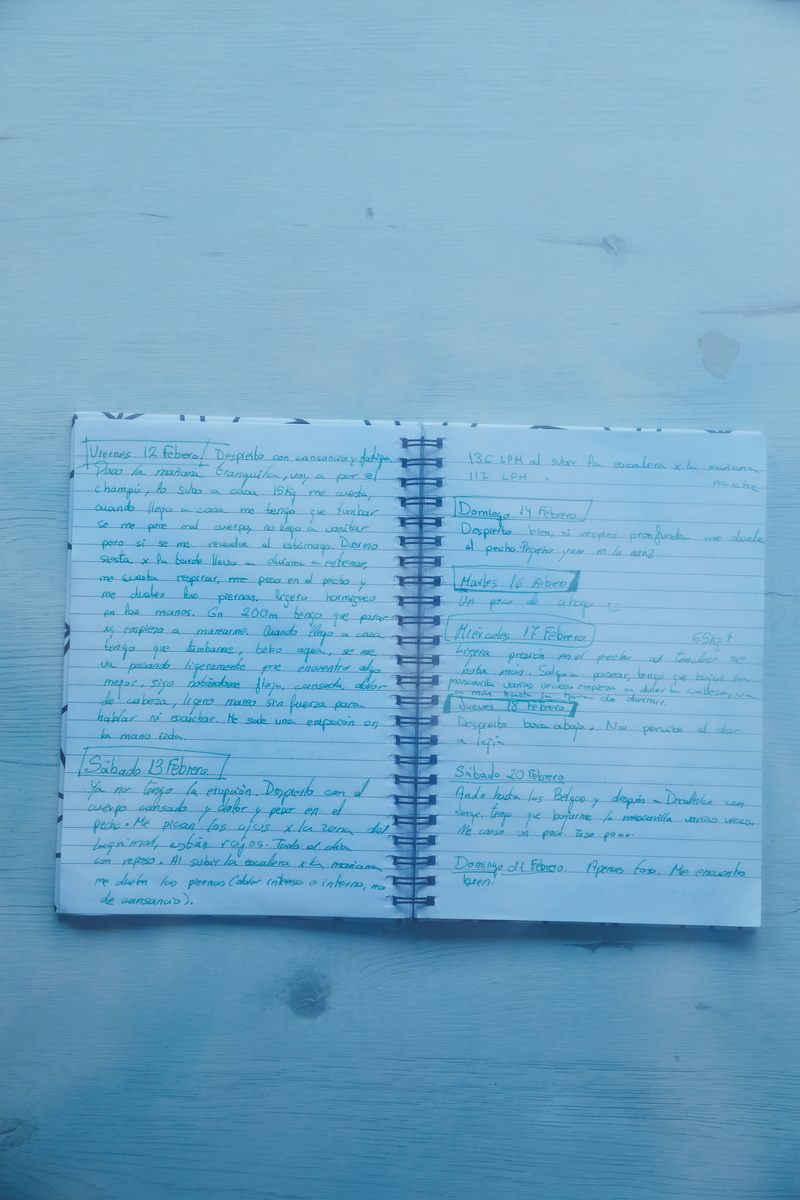 Viernes 12 Febrero Despierto con cansancio y fatiga.
Paso la mañana tranquila, voy a por el
champú, lo subo a casa 15kg me cuesta,
cuando llego a casa me tengo que tumbar
se me pone mal cuerpo, no llego a vomitar
pero si se me revuelve el estómago. Duermo
siesta x la tarde llevo a a entrenar,
me cuesta respirar, me pesa en el pecho y
me duelen las piernas, ligero hormigueo
en las manos. En 200m tengo que parar
xq empiezo a marearme. Cuando llego a casa
tengo que tumbarme, bebo agua, se me
va pasando ligeramente me encuentro algo
mejor, sigo notándome floja, cansada, dolor
de cabeza, ligero mareo sin fuerza para
hablar ni escuchar. Me sale una erupción en
la mano izda.
Sábado 13 Febrero
Ya no tengo la erupción. Despierto con el
cuerpo cansado y dolor y peso en el
pecho. Me pican los ojos x la zona del
lagrimal, están rojos. Todo el día
con reposo. Al subir la escalera x la mañana
me duelen las piernas (dolor intenso e interno, no
de cansancio).
136 LPM al subir la escalera x la mañana
117 LPM . noche
Domingo 14 Febrero
Despierto bien, si respiro profunda me duele
el pecho.
Martes 16 Febrero
Un poco de ahogo
Miércoles 17 Febrero 65kg
Ligera presión en el pecho al tender se
nota más. Salgo a pasear, tengo que bajar la
mascarilla varias veces empieza a doler la cabeza, va
a más hasta la hora de dormir.
Jueves 18 Febrero
Despierto boca abajo. No percibo el olor
a lejía
Sábado 20 Febrero
Ando hasta los Belgas y después a Decathlon con
tengo que bajarme la mascarilla varias veces
Me canso un poco. Toso poco.
Domingo 21 Febrero. Apenas toso. Me encuentro
bien.